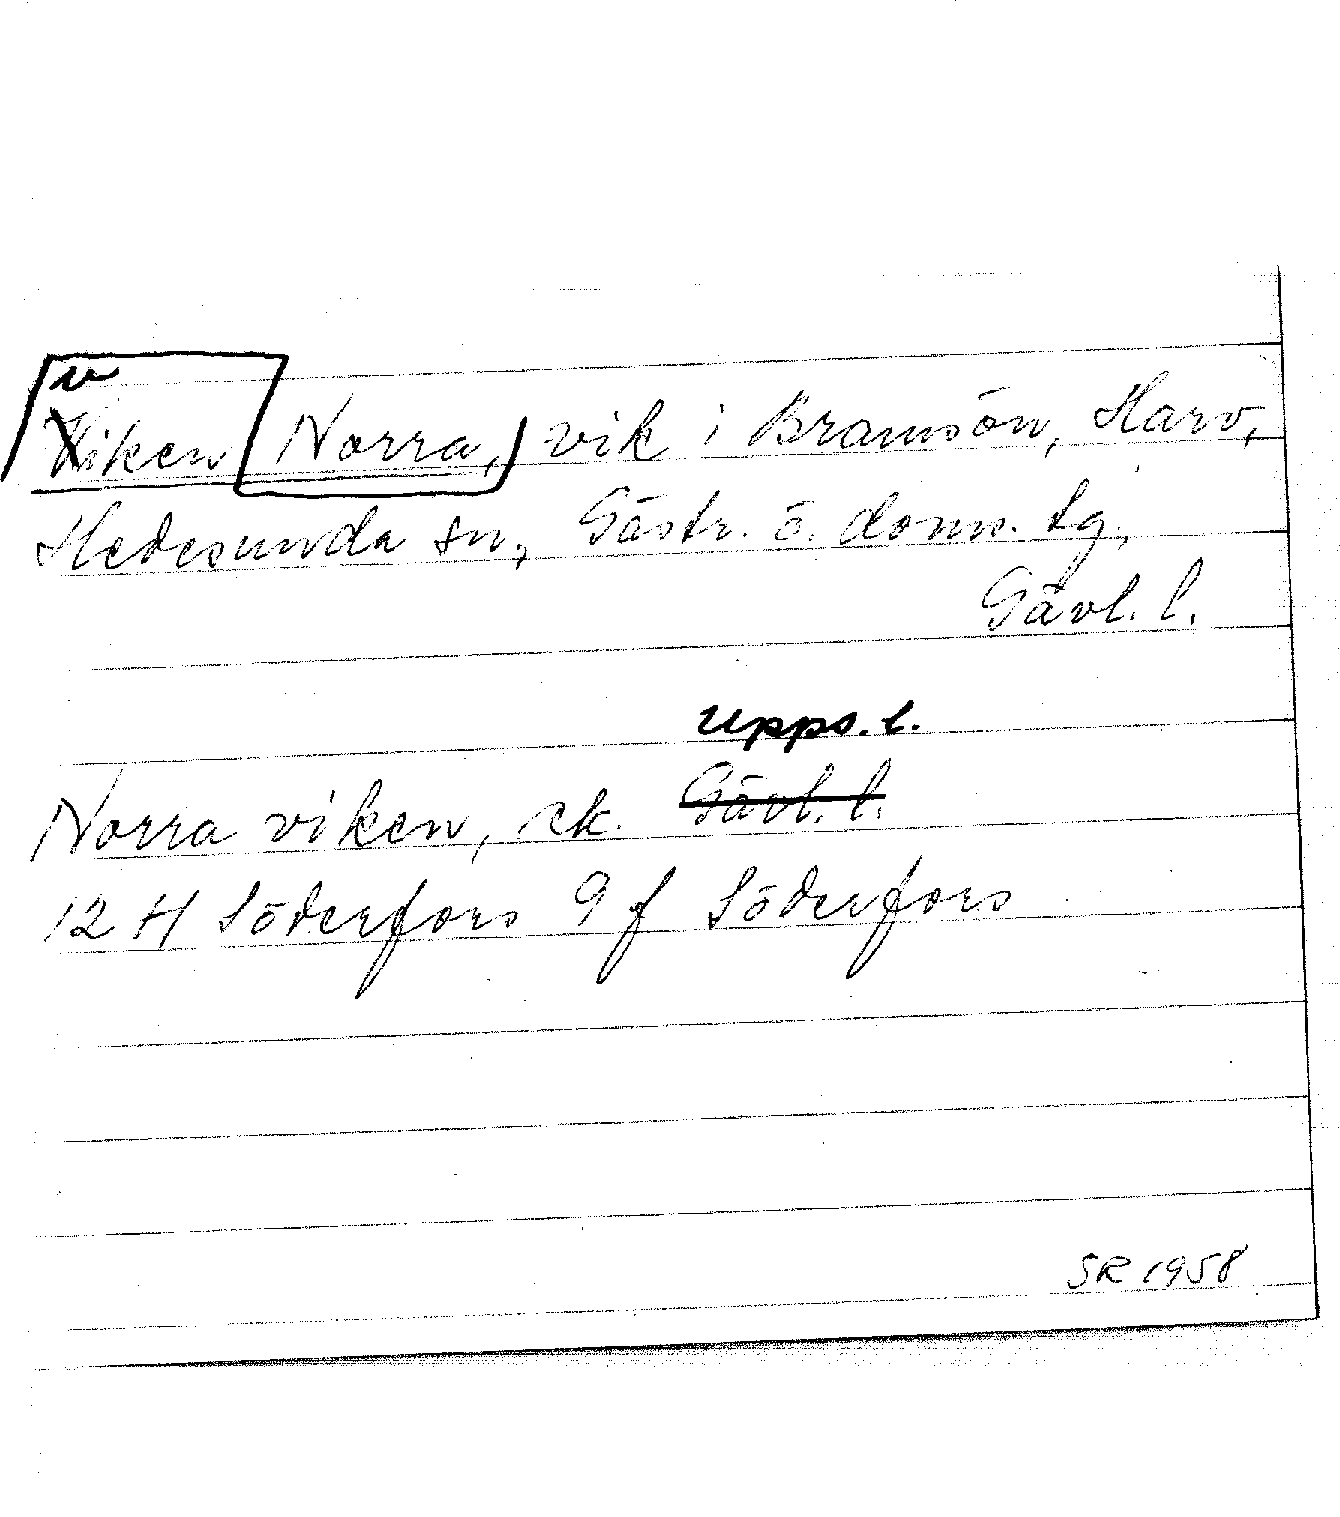 v
Viken Norra, vik i Bramsön, Harv,
Hedesunda sn, Gästr. ö. doms. tg,
Gävl. l.
Upps. l.
Norra viken, ek. Gävl. l.
12 H Söderfors 9 f Söderfors
SR 1958